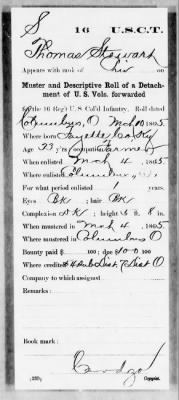 S 16 U.S.C.T.
Thomas Stewart
Appears with rank of Priv on
Muster and Descriptive Roll of a Detach-
ment of U. S. Vols. forwarded
for the 16 Reg't U. S. Col'd Infantry. Roll dated
Columbus, O Mch 10 1865.
Where born Fayette Co Ky
Age 23 y'rs; occupation Farmer
When enlisted Mch 4, 1865
Where enlisted Columbus
For what period enlisted 1 years.
Eyes BK; hair BK
Complexion DK; height 5 ft. 8 in.
When mustered in Mch 4, 1865
Where mustered in Columbus O
Bounty paid $ 100; due $ 100 100
Where credited
Company to which assigned
Remarks:
Book mark:
(339) Copyist.